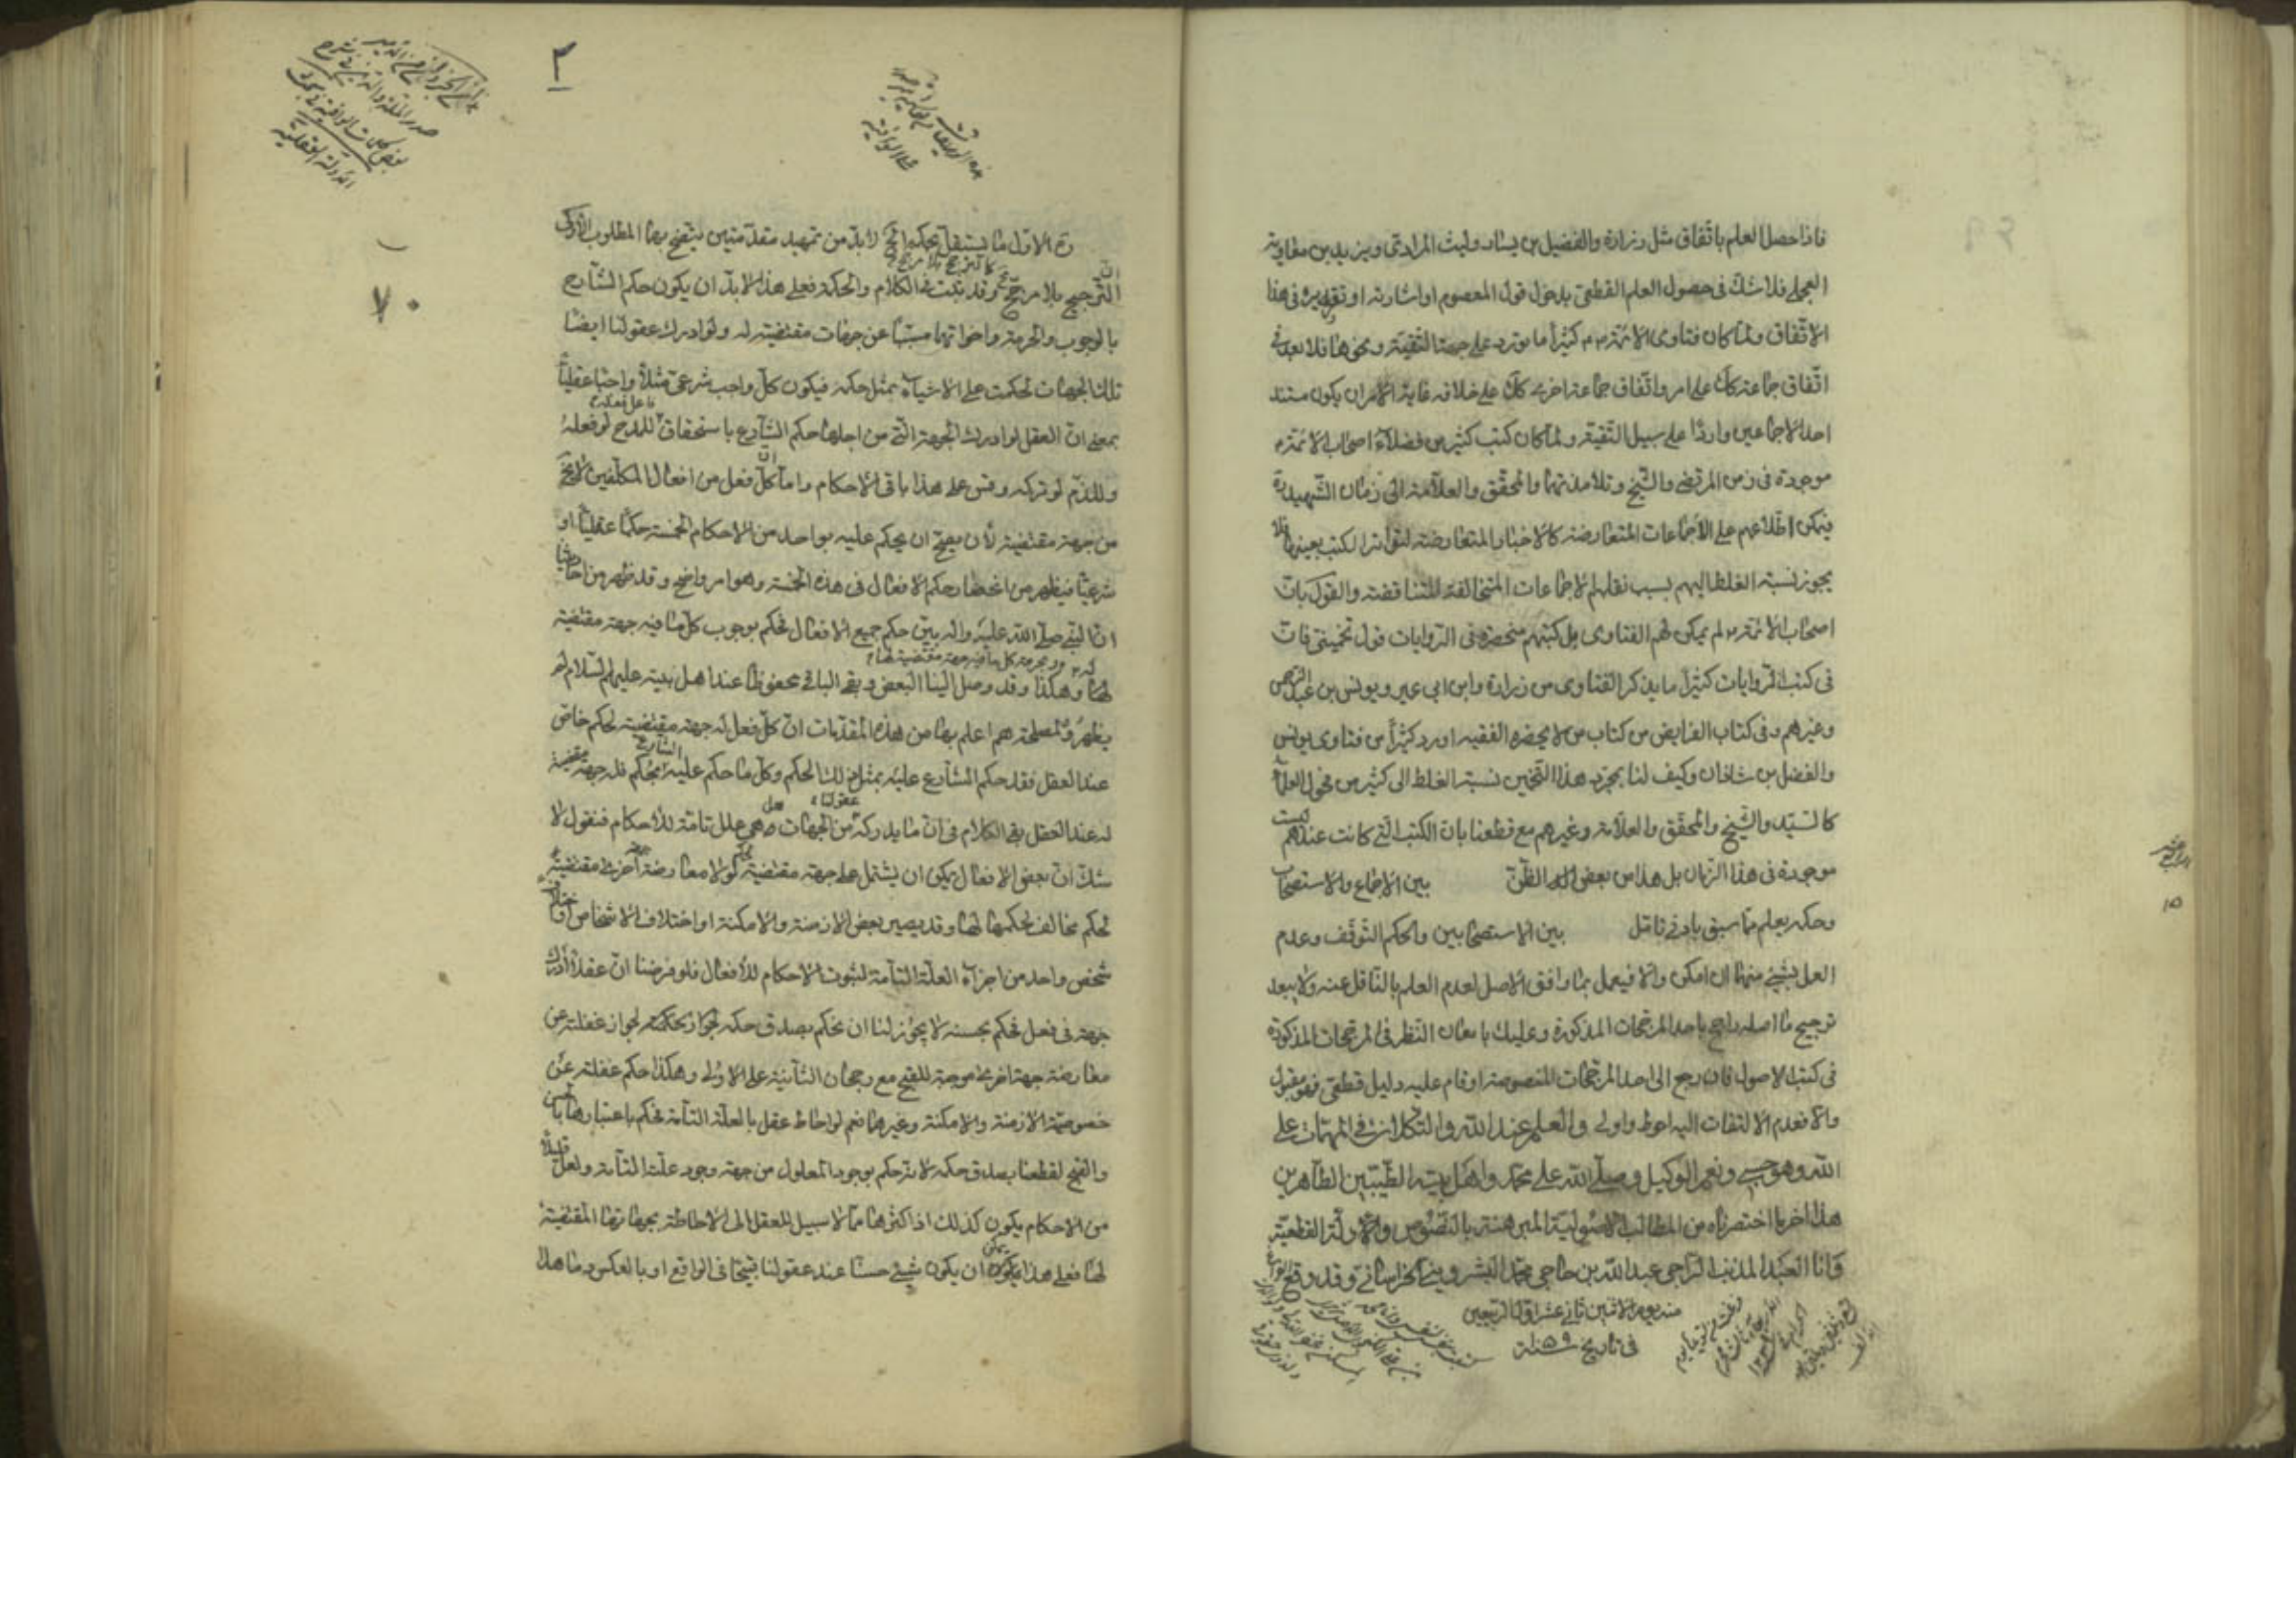 فاذا حصل العلم باتفاق مثل زرارة والفضيل بن يسار وليث المرادي ويزيد بن معاوية
العجلي فلا شك في حصول العلم القطعي بدخول قول المعصوم او اشارته او تقريره في هذا
الاتفاق ولما كان فتاوى الائمة ع م كثيرا ما يورد على جهة التقية ونحوها فلا بعد في
اتفاق جماعة كك على امر واتفاق جماعة اخرى كك على خلافه غاية الامر ان يكون مستند
احد الاجماعين واردا على سبيل التقية ولما كان كتب كثير من فضلاء اصحاب الائمة م
موجودة في زمن المرتضى والشيخ وتلامذتهما والمحقق والعلامة الى زمان الشهيد ره
فيمكن اطلاعهم على الاجماعات المتعارضة كالاخبار المتعارضة لتواتر الكتب بعينها فلا
يجوز نسبة الغلط اليهم بسبب نقلهم الاجماعات المتخالفة المتناقضة والقول بان
اصحاب الائمة م لم يكن لهم الفتاوى بل كتبهم منحصرة في الروايات قول تخميني فان
في كتب الروايات كثيرا ما يذكر الفتاوى من زرارة وابن ابي عمير ويونس بن عبد الرحمن
وغيرهم وفي كتاب الفرايض من كتاب من لا يحضره الفقيه اورد كثيرا من فتاوى يونس
والفضل بن شاذان وكيف لنا بمجرد هذا التخمين نسبة الغلط الى كثير من فحول العلماء
كالسيد والشيخ والمحقق والعلامة وغيرهم مع قطعنا بان الكتب التي كانت عندهم ليست
موجودة في هذا الزمان بل هذا من بعض الظن بين الاجماع والاستصحاب
وحكمه يعلم مما سبق بادنى تامل بين الاستصحابين والحكم التوقف وعدم
العمل بشيء منهما ان امكن والا فيعمل بما وافق الاصل لعدم العلم بالناقل عنه ولا يبعد
ترجيح ما اصله راجح باحد المرجحات المذكورة وعليك بامعان النظر في المرجحات المذكورة
في كتب الاصول فان رجع الى احد المرجحات المنصوصة او قام عليه دليل قطعي فهو مقبول
والا فعدم الالتفات اليه احوط واولى والعلم عند الله والتكلان في المهمات على
الله وهو حسبي ونعم الوكيل وصلى الله على محمد واهل بيته الطيبين الطاهرين
هذا اخر ما اختصرناه من المطالب الاصولية المبرهنة بالنصوص والادلة القطعية
وانا العبد المذنب الراجي عبد الله بن حاجي محمد البشروي الخراساني وقد وقع الفراغ
منه يوم الاثنين ثاني عشر اول الربيعين
في تاريخ سنة ١٠٥٩
٢
٧٠
ره الاول ما يستقل بحكمه الخ لا بد من تمهيد مقدمتين يتضح بهما المطلوب الاولى
ان الترجيح بلا مرجح كالترجيح بلا مرجح وقد ثبت في الكلام والحكمة فعلى هذا لا بد ان يكون حكم الشارع
بالوجوب والحرمة واخواتهما مسببا عن جهات مقتضية له ولو ادرك عقولنا ايضا
تلك الجهات لحكمت على الاشياء بمثل حكمه فيكون كل واجب شرعي مثلا واجبا عقليا
بمعنى ان العقل لو ادرك الجهة التي من اجلها حكم الشارع باستحقاق فاعل فعله للمدح لو فعله
وللذم لو تركه وقس على هذا باقي الاحكام واما ان كل فعل من افعال المكلفين لا يخ
من جهة مقتضية لأن يصح ان يحكم عليه بواحد من الاحكام الخمسة حكما عقليا او
شرعيا فيظهر من انحصار حكم الافعال في هذه الخمسة وهو امر واضح وقد ظهر من احاديثنا
ان النبي صلى الله عليه واله بين حكم جميع الافعال فحكم بوجوب كل ما فيه جهة مقتضية
له وبحرمة كل ما فيه جهة مقتضية لها وهكذا وقد وصل الينا البعض وبقي الباقي محفوظا عند اهل بيته عليهم السلام لم
يظهروه لمصلحة هم اعلم بها من هذه المقدمات ان كل فعل له جهة مقتضية لحكم خاص
عند العقل فقد حكم الشارع عليه بمثل ذلك الحكم وكل ما حكم عليه الشارع بحكم فله جهة مقتضية
له عند العقل بقي الكلام في ان ما يدركه عقولنا من الجهات هل هي علل تامة للاحكام فنقول لا
شك ان بعض الافعال يمكن ان يشتمل على جهة مقتضية لحكم لولا معارضة جهة اخرى مقتضية
لحكم مخالف لحكمها لها وقد يصير بعض الازمنة والامكنة او اختلاف الاشخاص
شخص واحد من اجزاء العلة التامة لثبوت الاحكام للافعال فلو فرضنا ان عقلا ادرك
جهة في فعل فحكم بحسنه لا يجوز لنا ان نحكم بصدق حكمه لجواز غفلته عن
معارضة جهة اخرى موجبة للقبح مع رجحان الثانية على الاولى وهكذا حكم غفلته عن
خصوصية الازمنة والامكنة وغيرهما نعم لو احاط عقل بالعلة التامة فحكم باعتبارها بالحسن
والقبح لقطعنا بصدق حكمه لانه حكم بوجود المعلول من جهة وجود علته التامة ولعل قليلا
من الاحكام يكون كذلك اذ اكثرها مما لا سبيل للعقل الى الاحاطة بجهاتها المقتضية
لها فعلى هذا يمكن ان يكون شيء حسنا عند عقولنا قبيحا في الواقع او بالعكس وما هذا